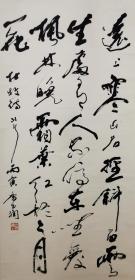 遠上寒山石徑斜白雲
生處有人家停車坐愛
楓林晚霜葉紅於二月
花 杜牧詩 丙寅